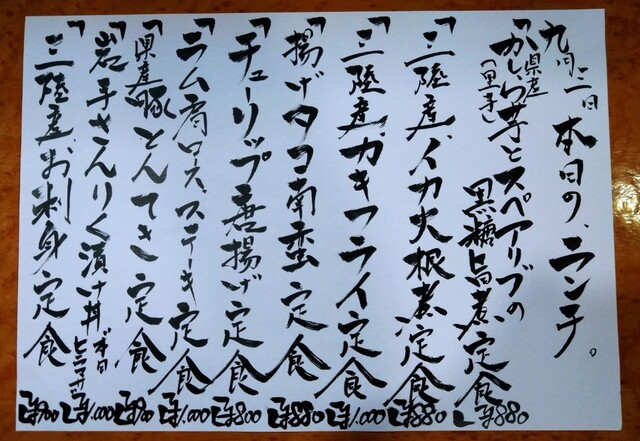 九月三日 本日の、ランチ。
「県産(里芋)
かしら芋とスペアリブの
黒糖旨煮定食」¥880
「三陸産、イカ大根煮定食」¥880
「三陸産、カキフライ定食」¥1,000
「揚げタコ南蛮定食」¥880
「チューリップ唐揚げ定食」¥800
「ラム肩ロース、ステーキ定食」¥1,000
「県産豚とんてき定食」¥900
「岩手さんりく漬け丼 本日ヒラマサ」¥1,000
「三陸産お刺身定食」¥900